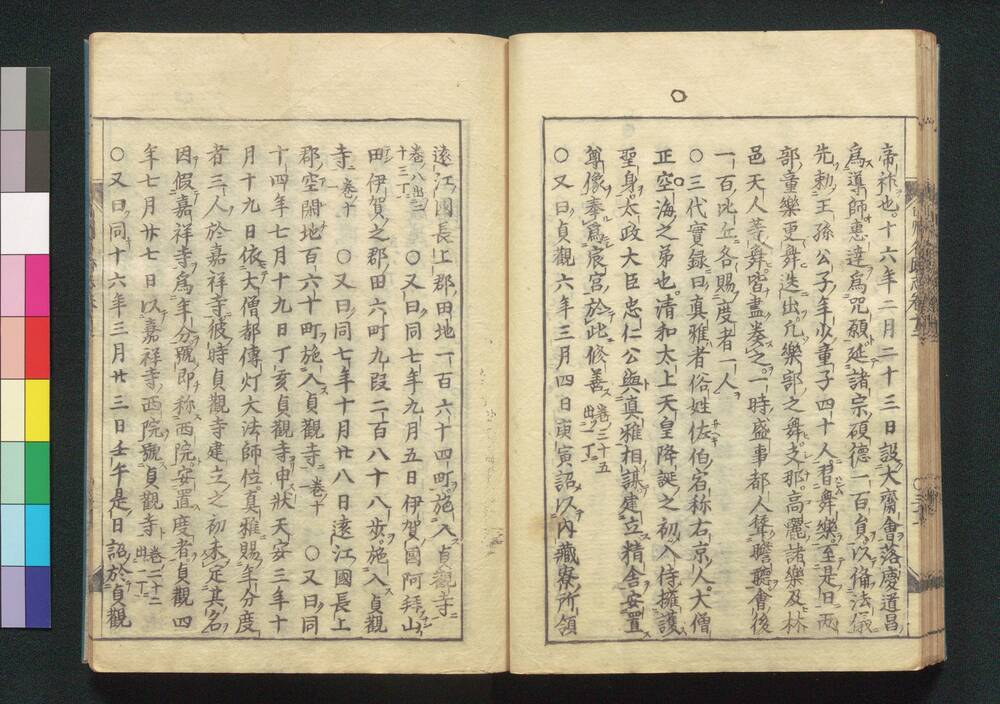 帝祚也。十六年二月二十三日設大齋會落慶道昌
爲導師惠達爲咒願延諸宗碩德一百員以備法儀
先勅王孫公子年少童子四十人習舞樂至是日兩
部童樂更舞迭出凡樂部之舞支那高麗諸樂及林
邑天人等舞皆盡奏之一時盛事都人聳瞻聽會後
一百比丘各賜度者一人
○三代實録曰真雅者俗姓佐伯宿称右京人大僧
正空海之弟也清和太上天皇降誕之初入侍擁護
聖身太政大臣忠仁公與真雅相謀建立精舎安置
尊像奉爲宸宮於此修善 卷三十五出丁
○又曰貞觀六年三月四日庚寅詔以内藏寮所領
遠江國長上郡田地一百六十四町施入貞觀寺
卷八出二十三丁 ○又曰同七年九月五日伊賀國阿拜山
田伊賀之郡田六町九段二百八十八歩施入貞觀
寺 卷十一 ○又曰同七年十月廿八日遠江國長上
郡空閑地百六十町施入貞觀寺 卷十 ○又曰同
十四年七月十九日丁亥貞觀寺申状天安三年十
月十九日依大僧都傳灯大法師位真雅賜年分度
者三人於嘉祥寺彼時貞觀寺建立之初未定其名
因假嘉祥寺爲年分號即称西院安置度者貞觀四
年七月廿七日以嘉祥寺西院號貞觀寺 卷二十二出二丁
○又曰同十六年三月廿三日壬午是日詔於貞觀